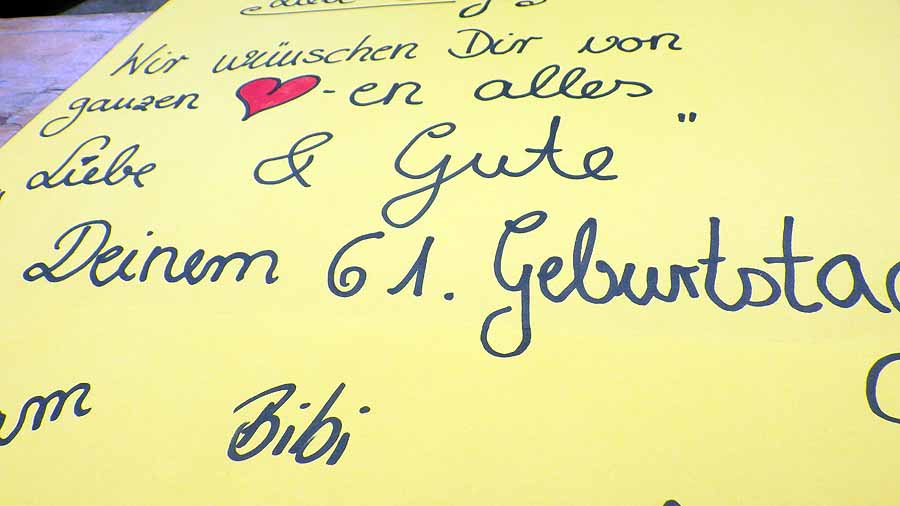 Wir wünschen Dir von
ganzen ❤-en alles
„Liebe & Gute"
Deinem 61. Geburtstag
Bibi